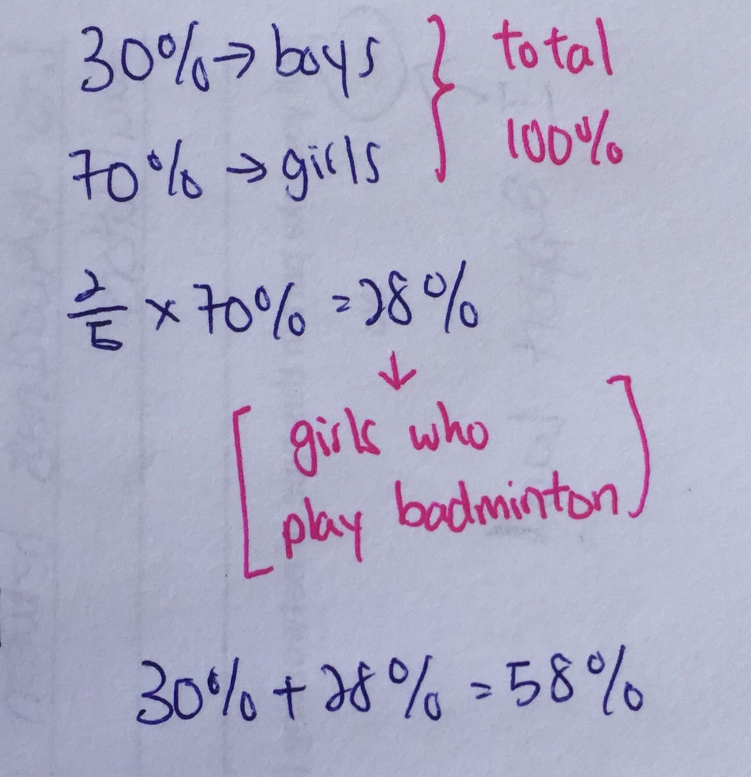 30% → boys } total
70% → girls 100%
2/5 × 70% = 28%
↓
[girls who
play badminton]
30% + 28% = 58%